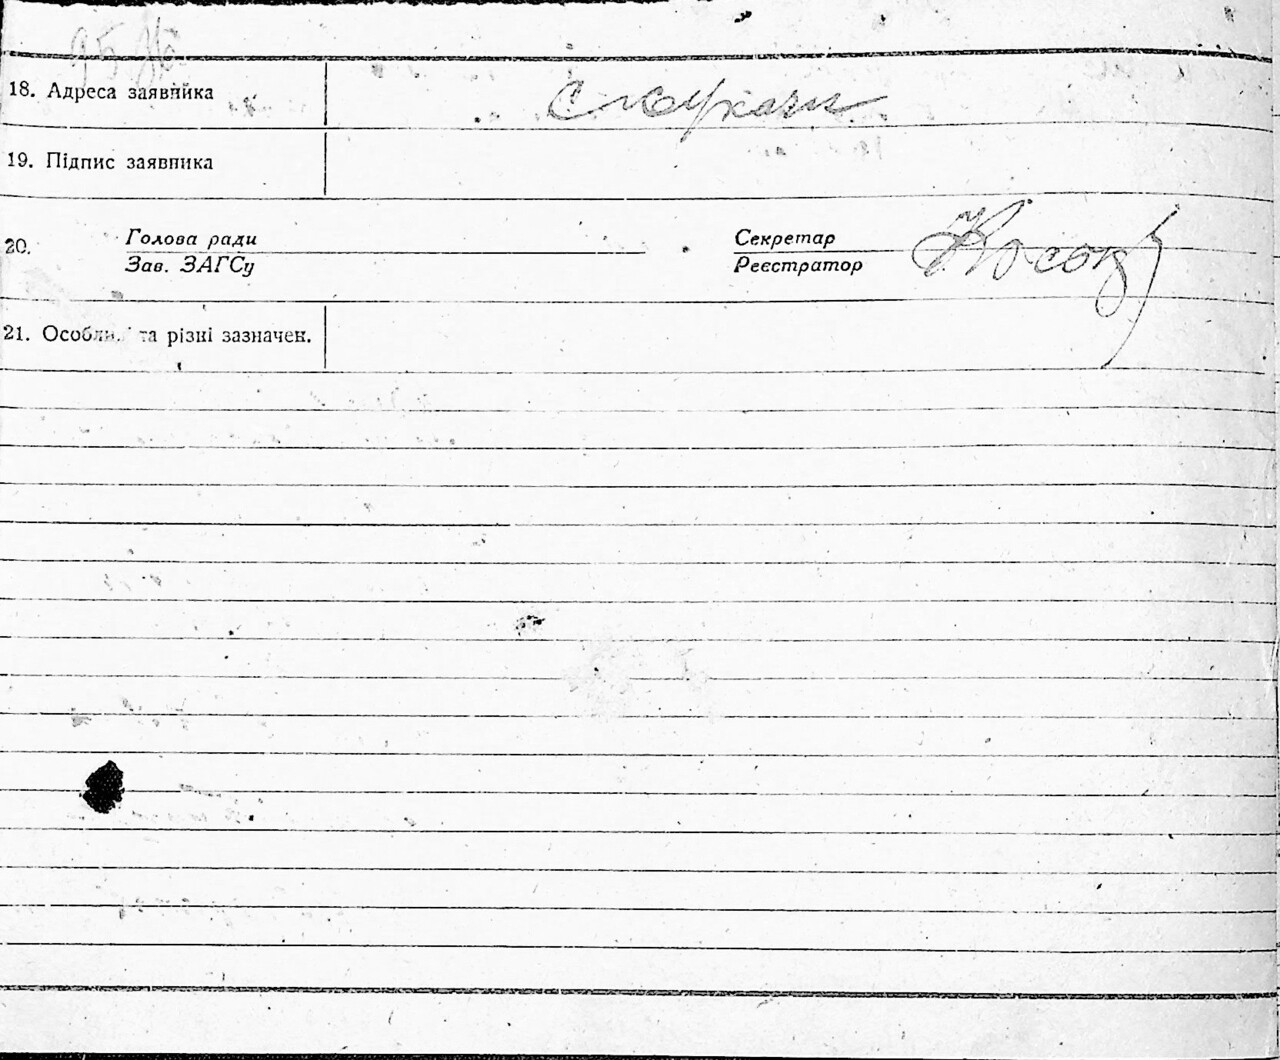 18. Адреса заявника
19. Підпис заявника
20. Голова ради
Зав. ЗАГСу
Секретар
Реєстратор
21. Особли. та різні зазначен.